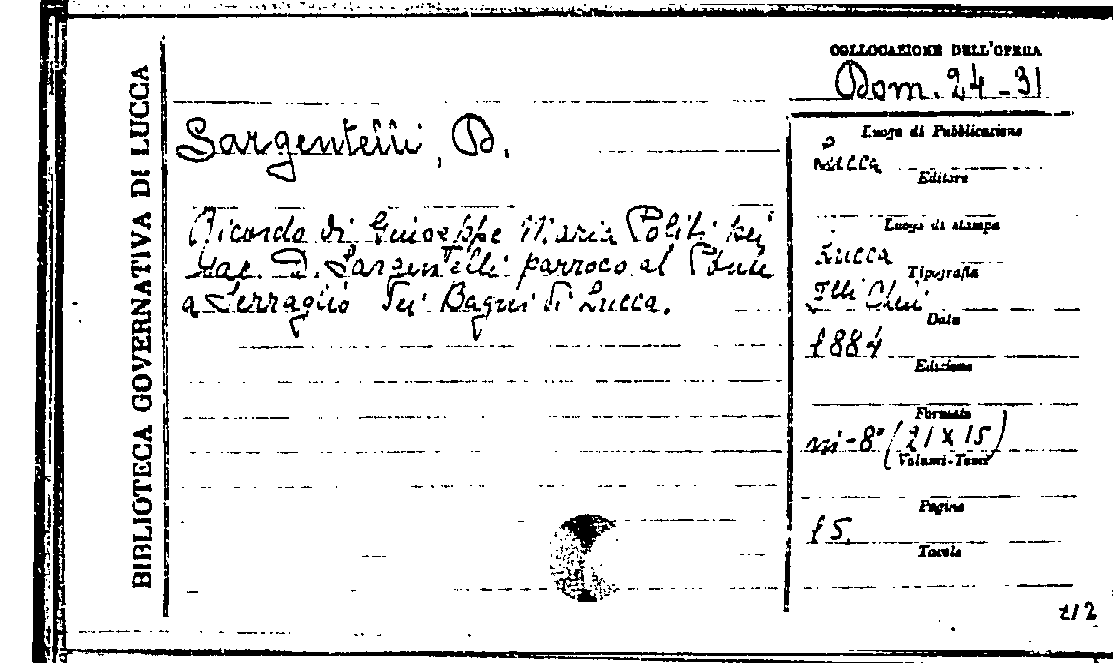 BIBLIOTECA GOVERNATIVA DI LUCCA
COLLOCAZIONE DELL'OPERA
Dom. 24-31
Sargentelli, D.
Ricordo di Giuseppe Maria Politi pei
Sac. D. Sargentelli parroco al Ponte
a Serraglio dei Bagni di Lucca.
Luogo di Pubblicazione
Lucca
Editore
Luogo di stampa
Lucca
Tipografia
F.lli Cheli
Data
1884
Edizione
Formato
in-8° (21 x 15)
Volumi-Tomi
Pagine
15.
Tavole